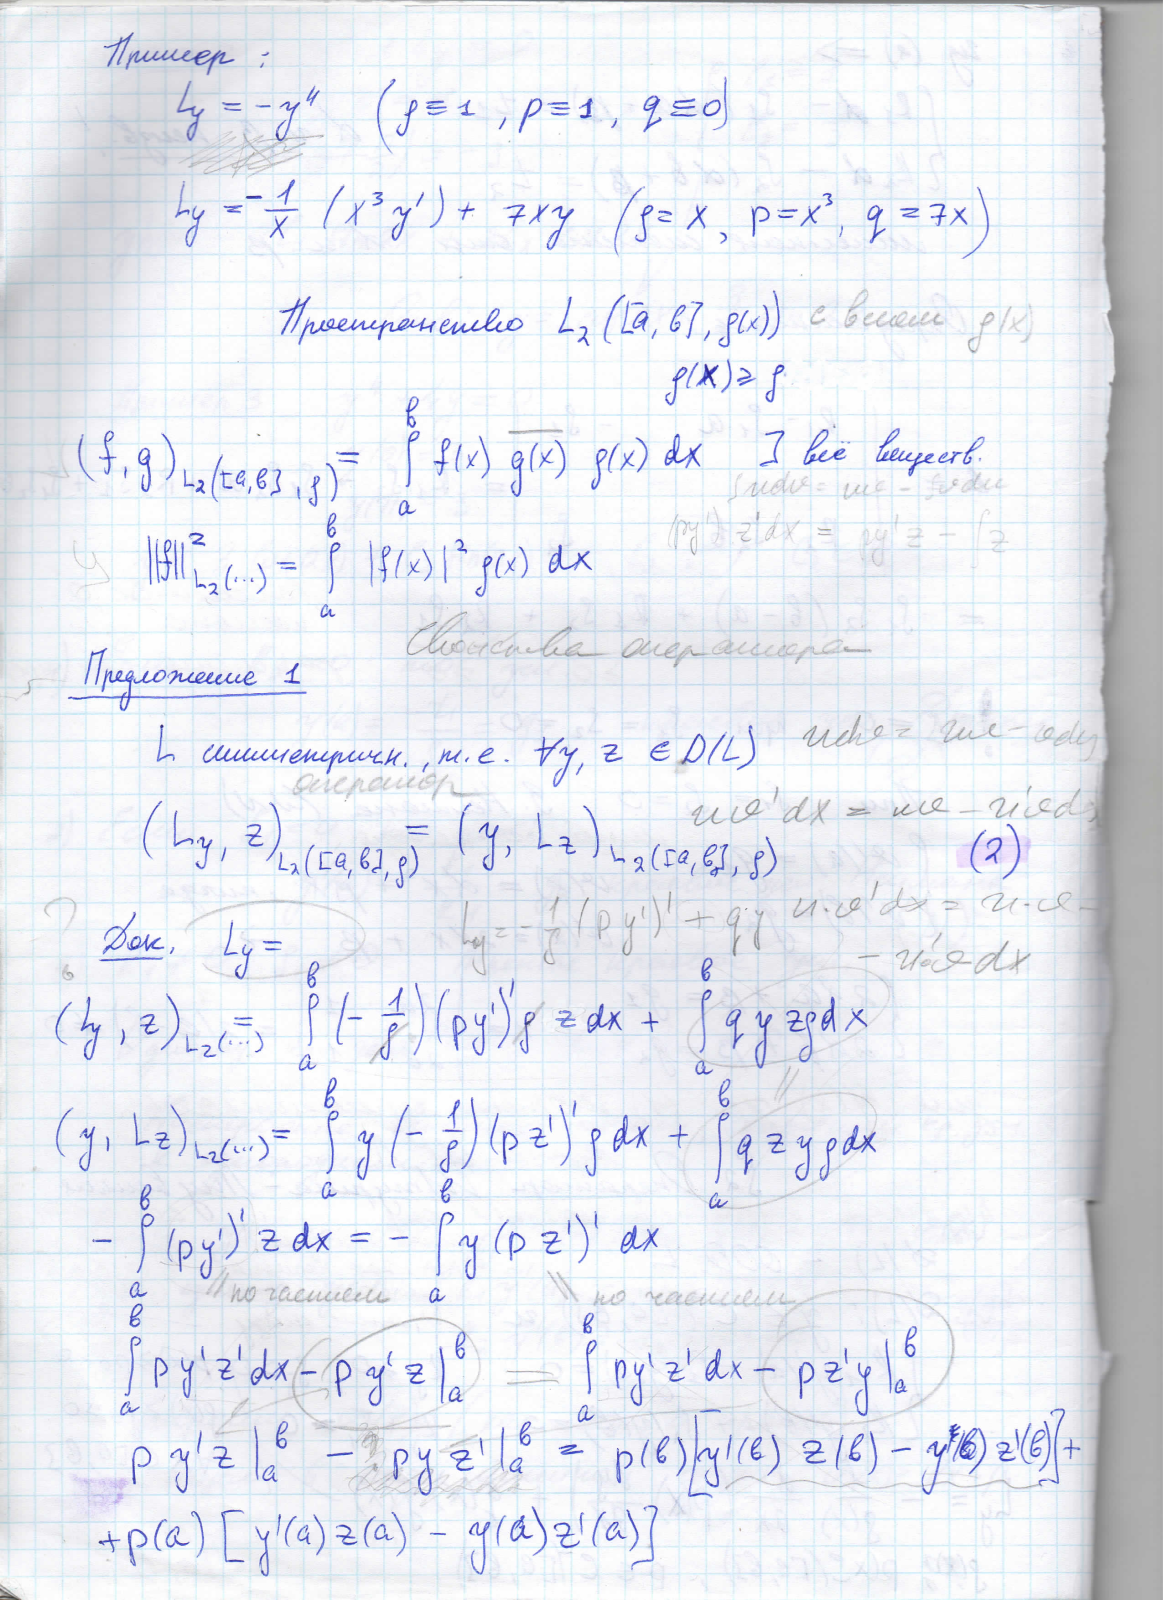 Пример:
Ly = -y'' (ρ≡1, p≡1, q≡0)
Ly = -1/x (x³y') + 7xy (ρ=x, p=x³, q=7x)
Пространство L₂([a,b],ρ(x)) с весом ρ(x)
ρ(x) ≥ ρ
(f,g)_{L₂([a,b],ρ)} = ∫_a^b f(x) \overline{g(x)} ρ(x) dx ∃ всё веществ.
∫udv = uv - ∫vdu
(py')' z'dx = py'z - ∫z
||f||²_{L₂(...)} = ∫_a^b |f(x)|² ρ(x) dx
Свойства оператора
Предложение 1
L симметричн., т.е. ∀y, z ∈ D(L) udv = uv - vdu
оператор
uv'dx = uv - u'vdx
(Ly, z)_{L₂([a,b],ρ)} = (y, Lz)_{L₂([a,b],ρ)} (2)
Ly = -1/ρ (py')' + qy u·v'dx = u·v -
- u'v dx
Док. Ly =
(Ly, z)_{L₂(...)} = ∫_a^b (-1/ρ)(py')'ρ z dx + ∫_a^b q y zρdx
(y, Lz)_{L₂(...)} = ∫_a^b y(-1/ρ)(pz')' ρdx + ∫_a^b q z y ρdx
- ∫_a^b (py')' z dx = - ∫_a^b y(p z')' dx
|| по частям || по частям
∫_a^b p y' z' dx - p y' z|_a^b = ∫_a^b py' z' dx - p z'y|_a^b
p y'z|_a^b - py z'|_a^b = p(b)[y'(b) z(b) - y(b) z'(b)] +
+p(a) [y'(a) z(a) - y(a) z'(a)]